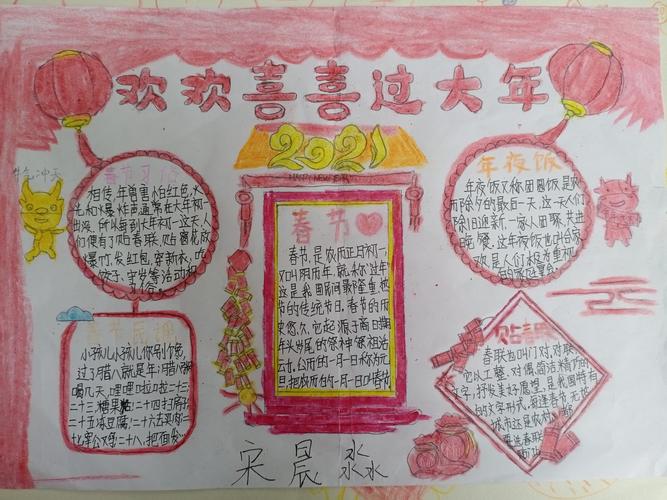 欢欢喜喜过大年
2021
HAPPY NEW YEAR
牛气冲天
春节习俗
相传,年兽害怕红色,火
光和爆炸声,通常在大年初一
出没,所以每到大年初一这天,人
们便有了贴春联、贴窗花,放
爆竹,发红包,穿新衣,吃
饺子,守岁等活动和
习俗。
年夜饭
年夜饭又称团圆饭是农
历除夕的最后一天,这一天人们
除旧迎新,一家人团聚,共进
晚餐,这年夜饭也叫合家
欢,是人们极为重视
的家庭宴会
春节
春节,是农历正月初一,
又叫阴历年,就称“过年”
这是我国民间最隆重、最热
节的传统节日,春节的历
史悠久,它起源于商日期
年头岁尾的祭神祭祖活
动,公历的一月一日称为元
旦,把农历的一月一日叫春节
春节民谣
小孩儿小孩儿你别馋,
过了腊八就是年,腊八粥
喝几天,哩哩啦啦二十三,
二十三,糖果粘,二十四扫房
二十五冻豆腐,二十六去买肉二
十七宰公鸡,二十八,把面发
贴春联
春联也叫门对,对联
它以工整、对偶、简洁、精巧的
文字,抒发美好愿望,是我国特有
的文学形式,每逢春节,无论
城市还是农村
要选春联
宋晨淼